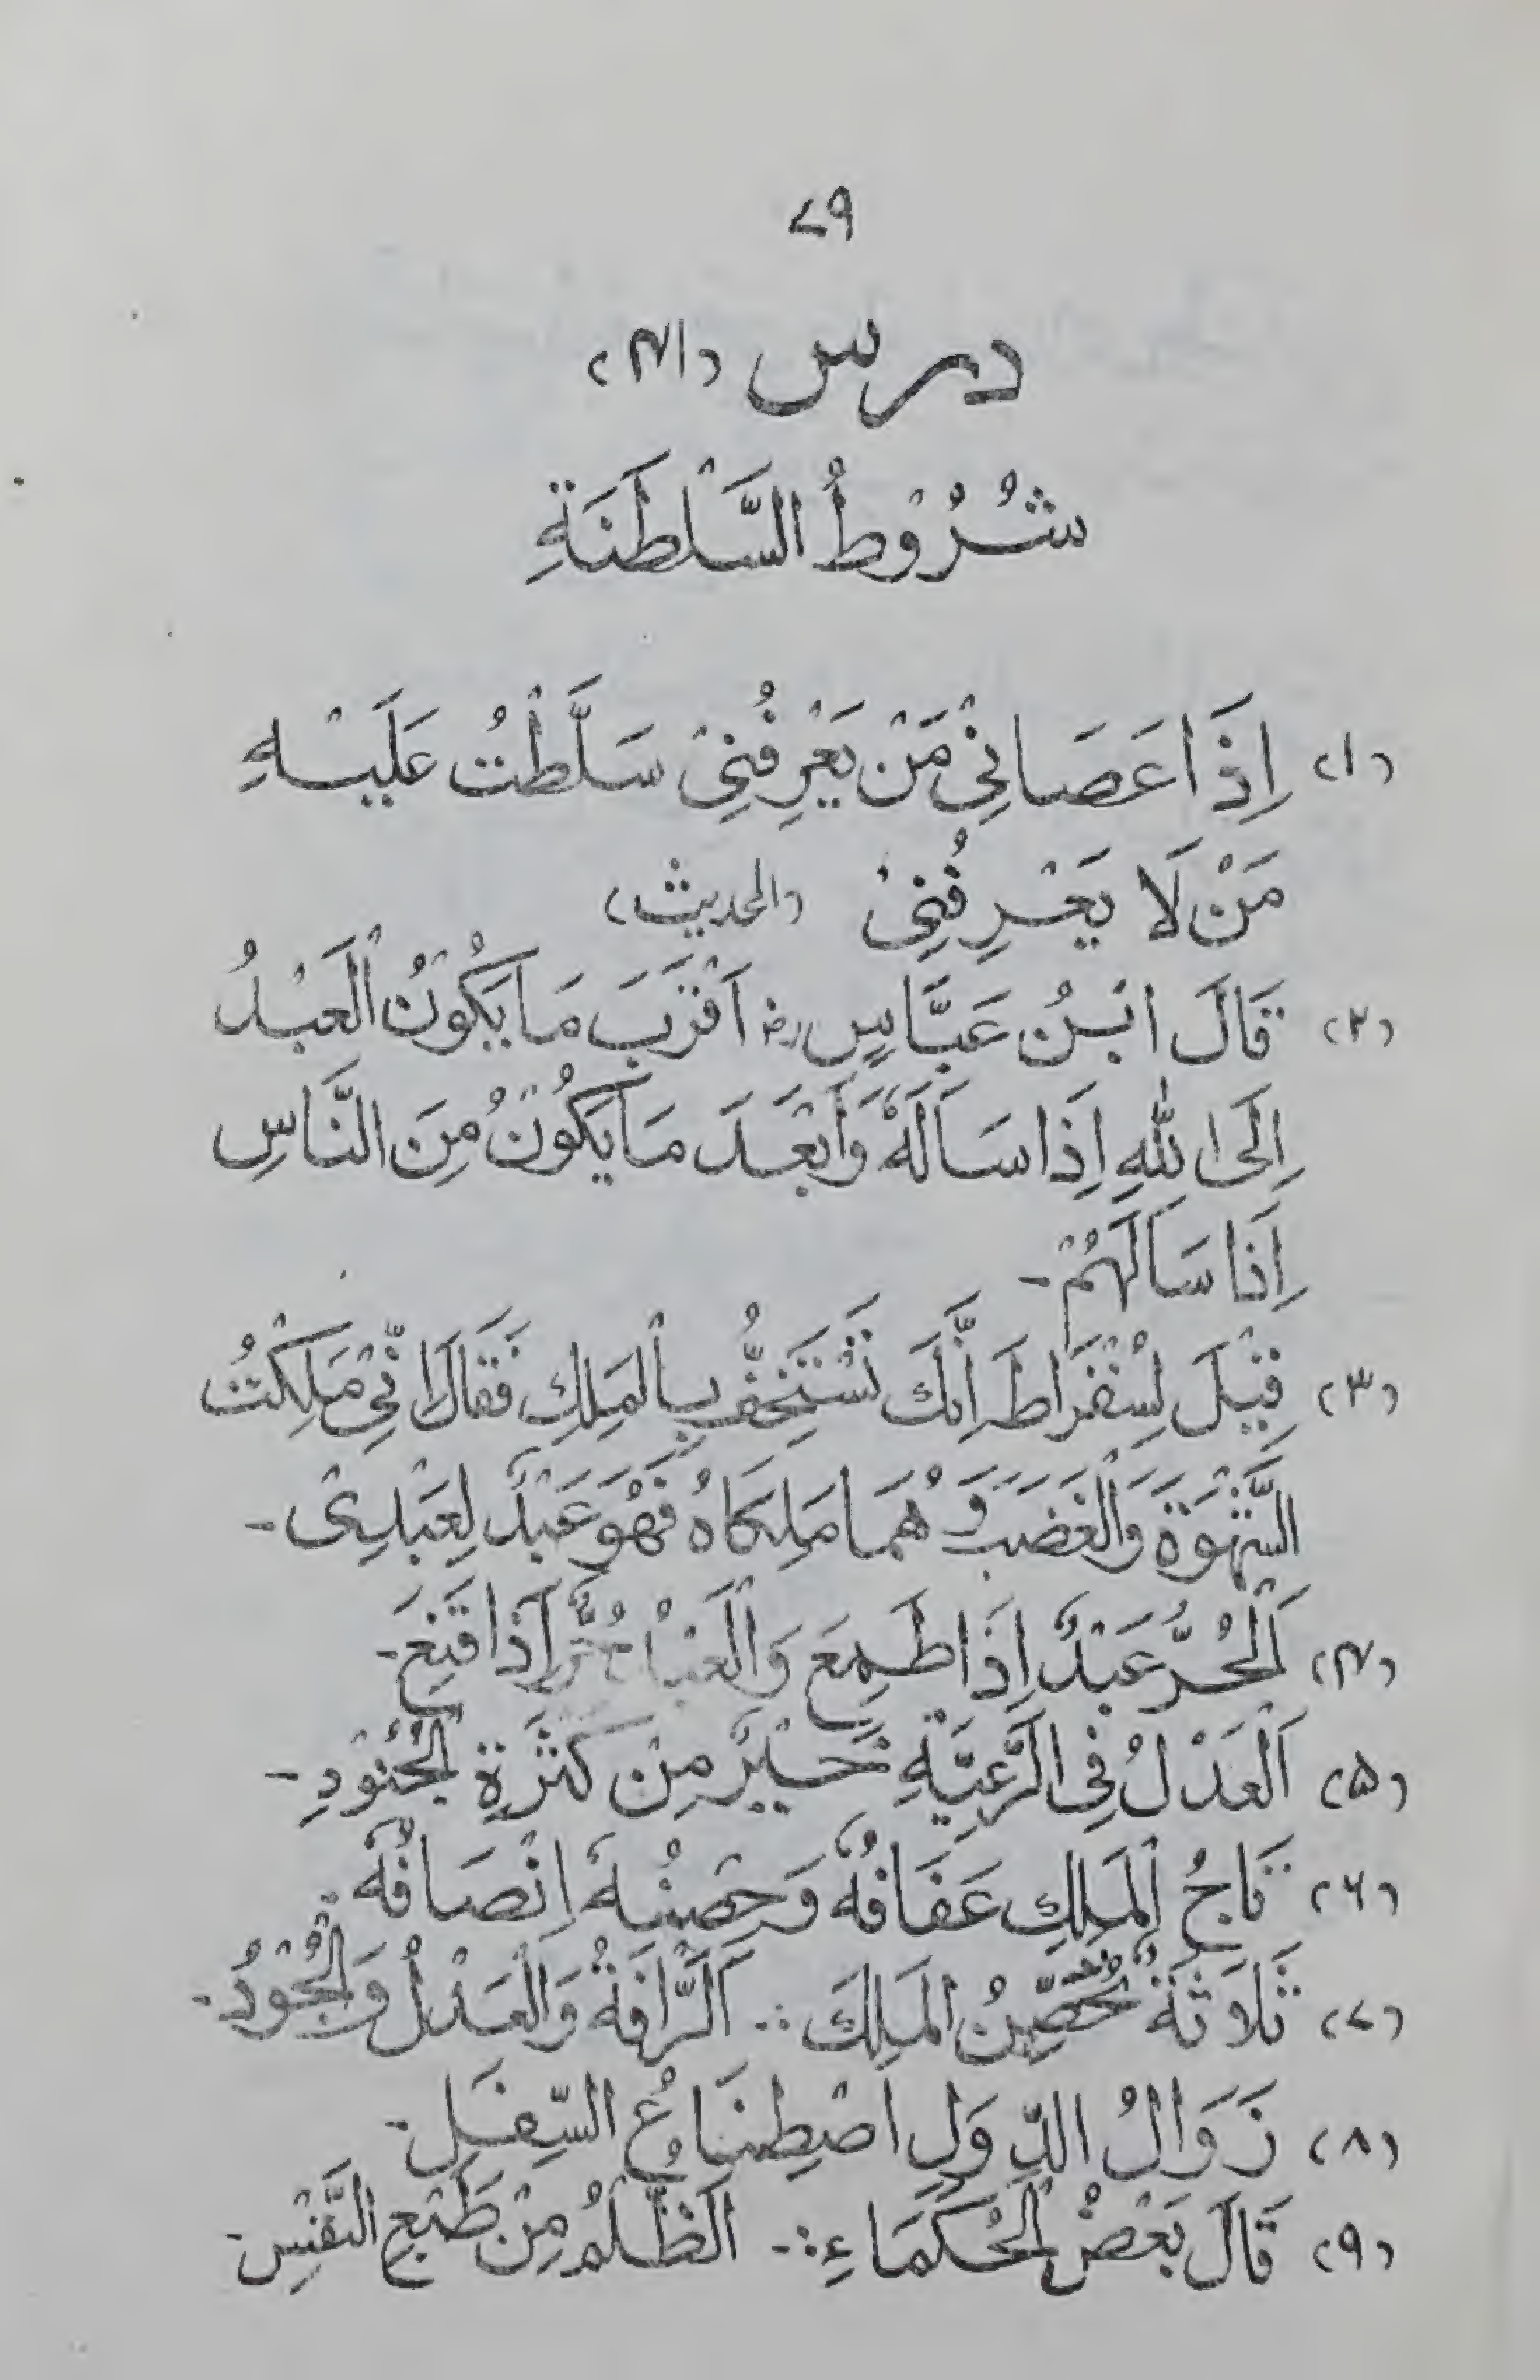 ۷۹
درس (۱۴)
شُرُوْطُ السَّلْطَنَةِ
(۱) اِذَا عَصَانِیْ مَنْ یَعْرِفُنِیْ سَلَّطْتُ عَلَیْهِ
مَنْ لَا یَعْرِفُنِیْ (الحدیث)
(۲) قَالَ ابْنُ عَبَّاسٍ رض اَقْرَبَ مَا یَکُوْنُ الْعَبْدُ
اِلَی اللّٰهِ اِذَا سَاَلَهٗ وَاَبْعَدَ مَا یَکُوْنُ مِنَ النَّاسِ
اِذَا سَاَلَهُمْ۔
(۳) قِیْلَ لِسُقْرَاطَ اِنَّكَ تَسْتَخِفُّ بِالْمَلِكِ فَقَالَ اِنِّیْ مَلِکْتُ
الشَّهْوَةَ وَالْغَضَبَ وَهُمَا مَلِکَاهُ فَهُوَ عَبْدٌ لِعَبْدِیْ۔
(۴) اَلْحُرُّ عَبْدٌ اِذَا طَمِعَ وَالْعَبْدُ حُرٌّ اِذَا قَنِعَ۔
(۵) اَلْعَدْلُ فِی الرَّعِیَّةِ خَیْرٌ مِنْ کَثْرَةِ الْجُنُوْدِ۔
(۶) تَاجُ الْمَلِكِ عَفَافُهٗ وَحِصْنُهٗ اِنْصَافُهٗ
(۷) ثَلَاثَةٌ تُحَصِّنُ الْمَلِكَ :۔ اَلرَّافَةُ وَالْعَدْلُ وَالْجُوْدُ۔
(۸) زَوَالُ الدِّوَلِ اصْطِنَاعُ السِّفَلِ۔
(۹) قَالَ بَعْضُ الْحُکَمَاءِ :۔ اَلظُّلْمُ مِنْ طَبْعِ النَّفْسِ۔